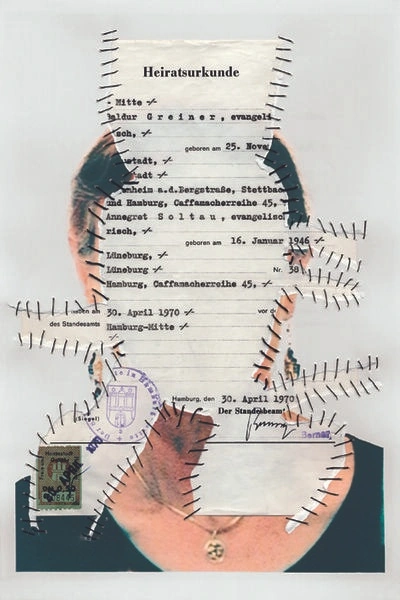 Heiratsurkunde
- Mitte -/-
aldur Greiner, evangeli
sch, -/-
geboren am 25. Nove
ustadt, -/-
stadt -/-
enheim a.d.Bergstraße, Stettbac
und Hamburg, Caffamacherreihe 45,
Annegret Soltau, evangelisc
risch, -/-
geboren am 16. Januar 1946 -/-
Lüneburg, -/-
Lüneburg -/- Nr. 38
Hamburg, Caffamacherreihe 45, -/-
ben am 30. April 1970 -/- vor de
des Standesamts Hamburg-Mitte -/-
Hamburg, den 30. April 1970
Der Standesbeam
(Siegel)